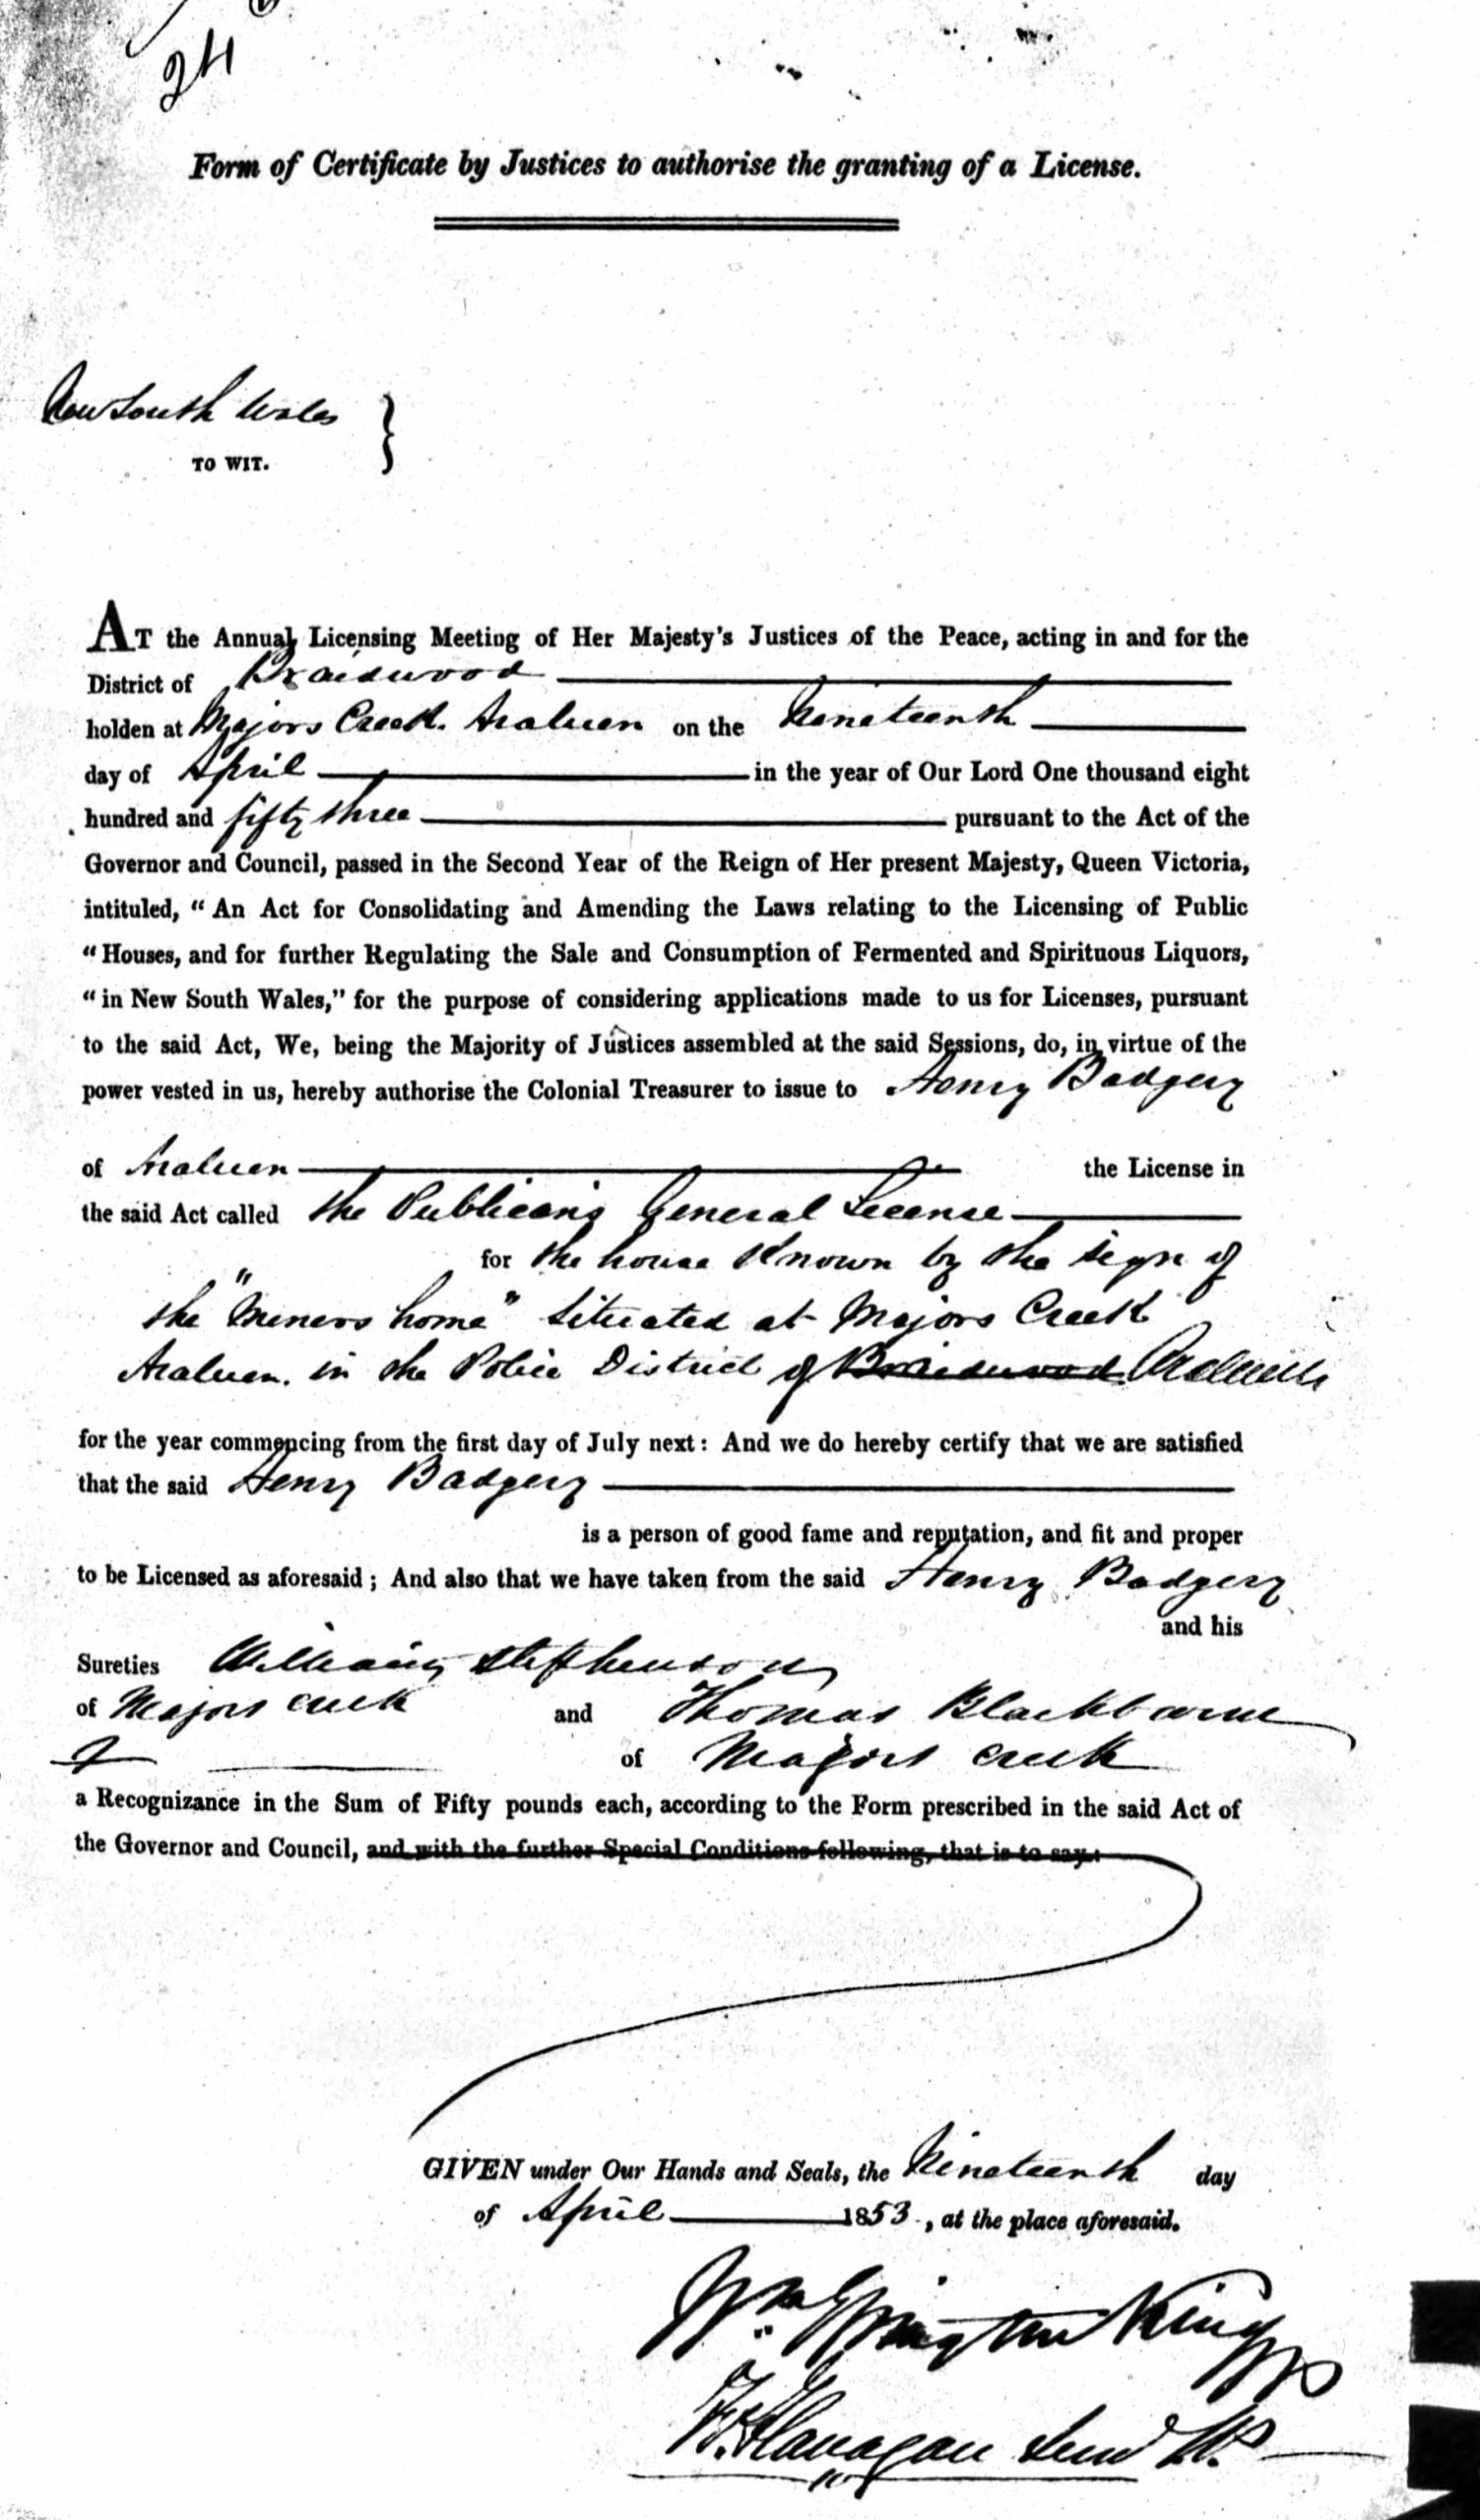 24
Form of Certificate by Justices to authorise the granting of a License.
New South Wales }
TO WIT.
AT the Annual Licensing Meeting of Her Majesty's Justices of the Peace, acting in and for the
District of Braidwood
holden at Majors Creek. Araluen on the Nineteenth
day of April in the year of Our Lord One thousand eight
hundred and fifty three pursuant to the Act of the
Governor and Council, passed in the Second Year of the Reign of Her present Majesty, Queen Victoria,
intituled, “ An Act for Consolidating and Amending the Laws relating to the Licensing of Public
“ Houses, and for further Regulating the Sale and Consumption of Fermented and Spirituous Liquors,
“ in New South Wales,” for the purpose of considering applications made to us for Licenses, pursuant
to the said Act, We, being the Majority of Justices assembled at the said Sessions, do, in virtue of the
power vested in us, hereby authorise the Colonial Treasurer to issue to Henry Badgery
of Araluen the License in
the said Act called the Publicans General License
for the house Known by the sign of
the "Miners home" Situated at Majors Creek
Araluen. in the Police District of Braidwood Araluen
for the year commencing from the first day of July next: And we do hereby certify that we are satisfied
that the said Henry Badgery
is a person of good fame and reputation, and fit and proper
to be Licensed as aforesaid ; And also that we have taken from the said Henry Badgery
and his
Sureties William Stephenson
of Majors Creek and Thomas Blackburne
of Majors Creek
a Recognizance in the Sum of Fifty pounds each, according to the Form prescribed in the said Act of
the Governor and Council, and with the further Special Conditions following, that is to say:
GIVEN under Our Hands and Seals, the Nineteenth day
of April 1853, at the place aforesaid.
King
Flanagan